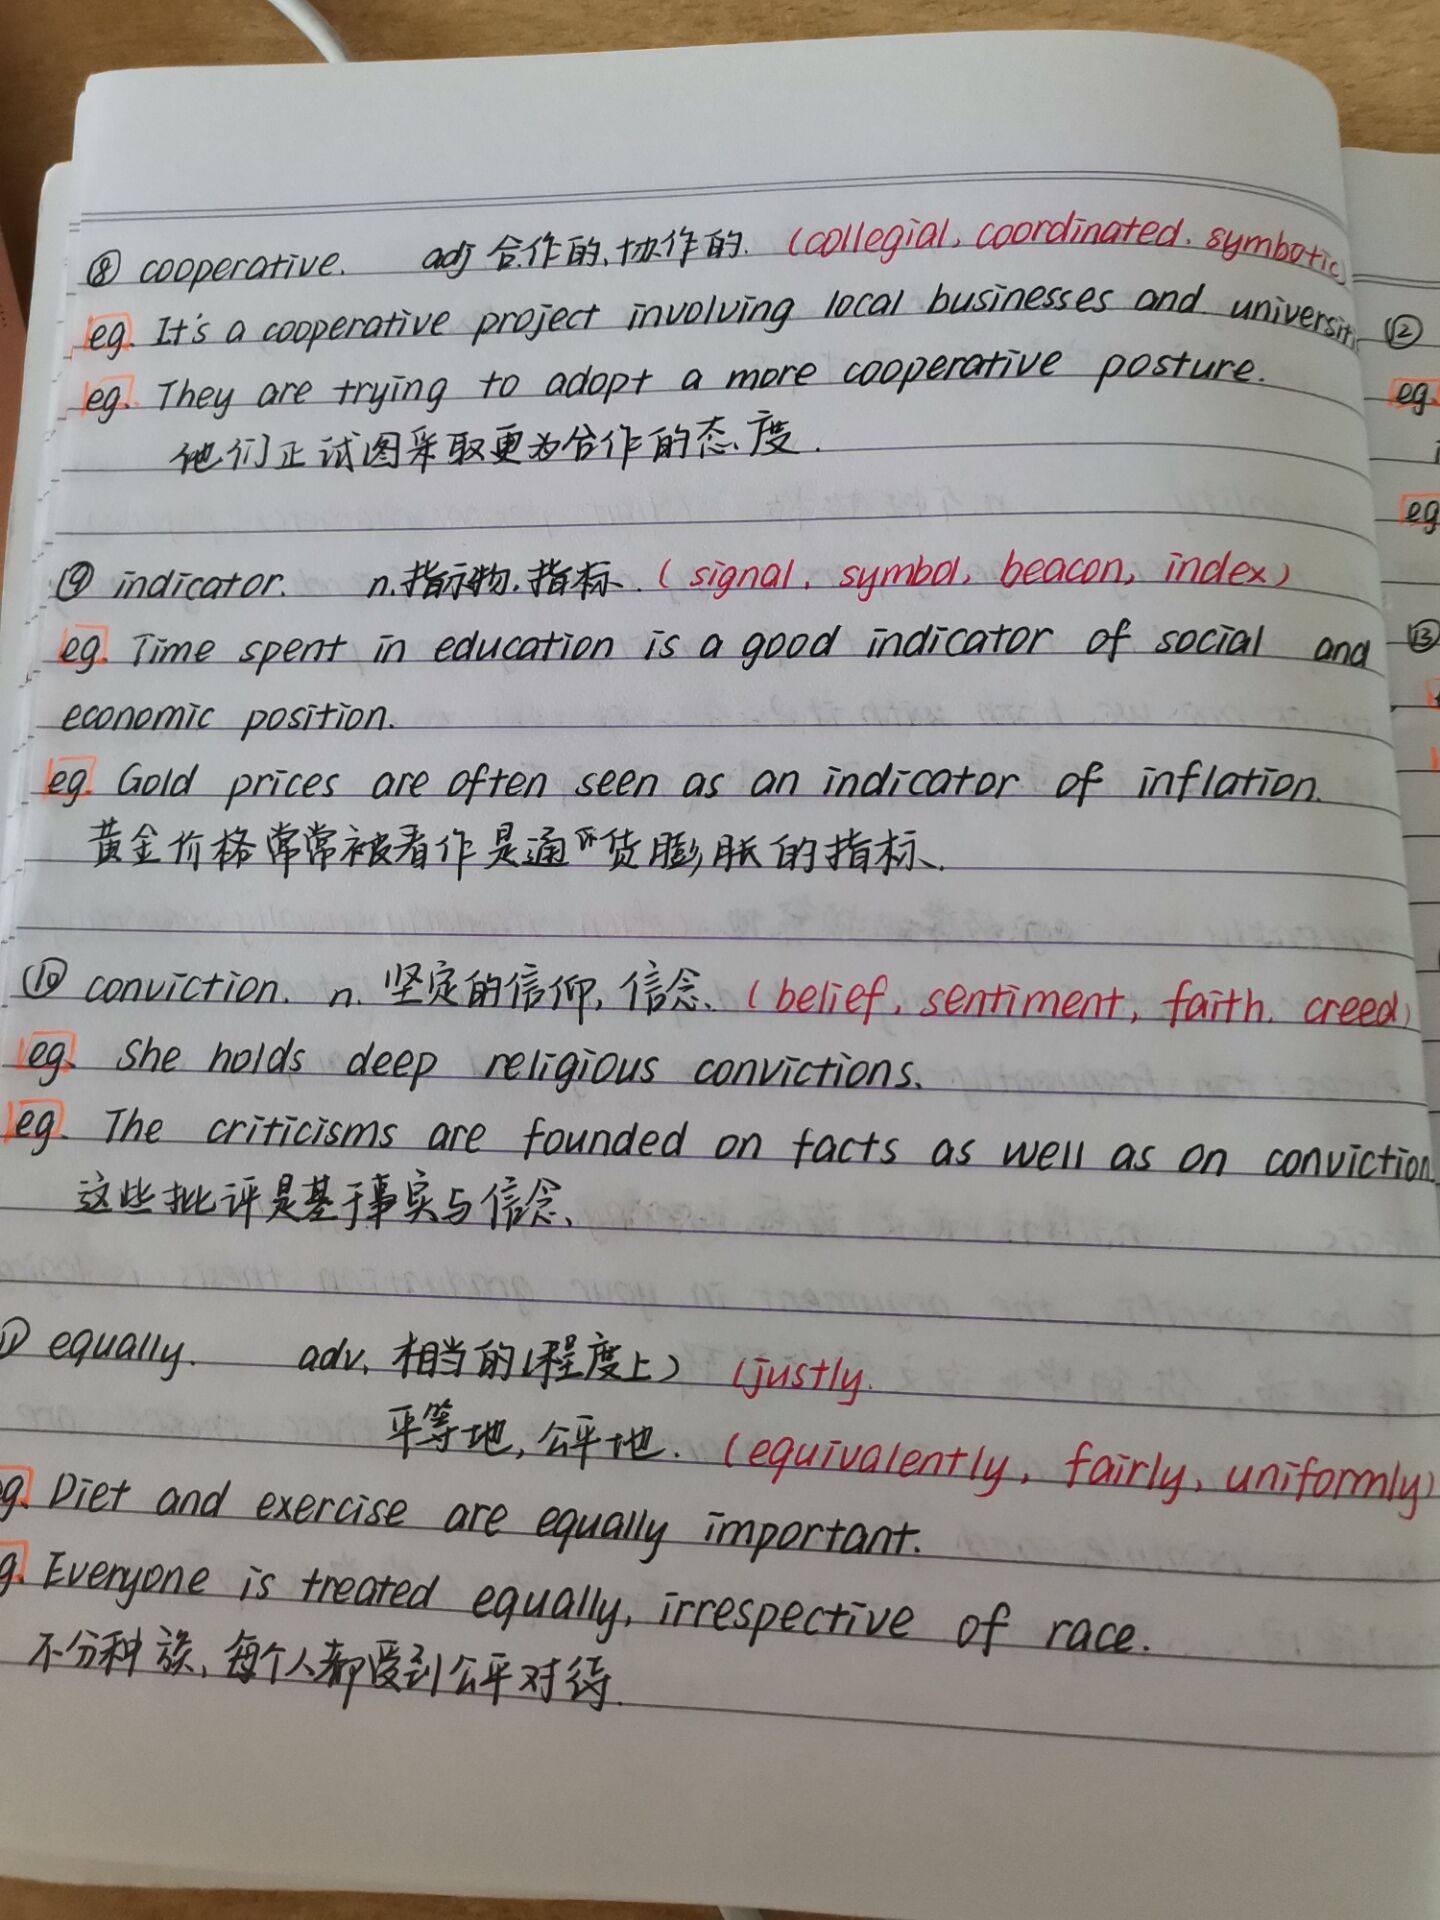 ⑧ cooperative. adj 合作的、协作的. (collegial, coordinated. symbotic)
eg. It's a cooperative project involving local businesses and universit
eg. They are trying to adopt a more cooperative posture.
他们正试图采取更为合作的态度.
⑨ indicator. n. 指示物.指标. (signal, symbol, beacon, index)
eg. Time spent in education is a good indicator of social and
economic position.
eg. Gold prices are often seen as an indicator of inflation.
黄金价格常常被看作是通货膨胀的指标、
⑩ conviction. n. 坚定的信仰, 信念、 (belief, sentiment, faith. creed)
eg. She holds deep religious convictions.
eg. The criticisms are founded on facts as well as on conviction.
这些批评是基于事实与信念、
⑪ equally. adv. 相当的(程度上) (justly.
平等地, 公平地. (equivalently, fairly, uniformly)
eg. Diet and exercise are equally important.
eg. Everyone is treated equally, irrespective of race.
不分种族, 每个人都受到公平对待.
⑫
eg.
eg
⑬